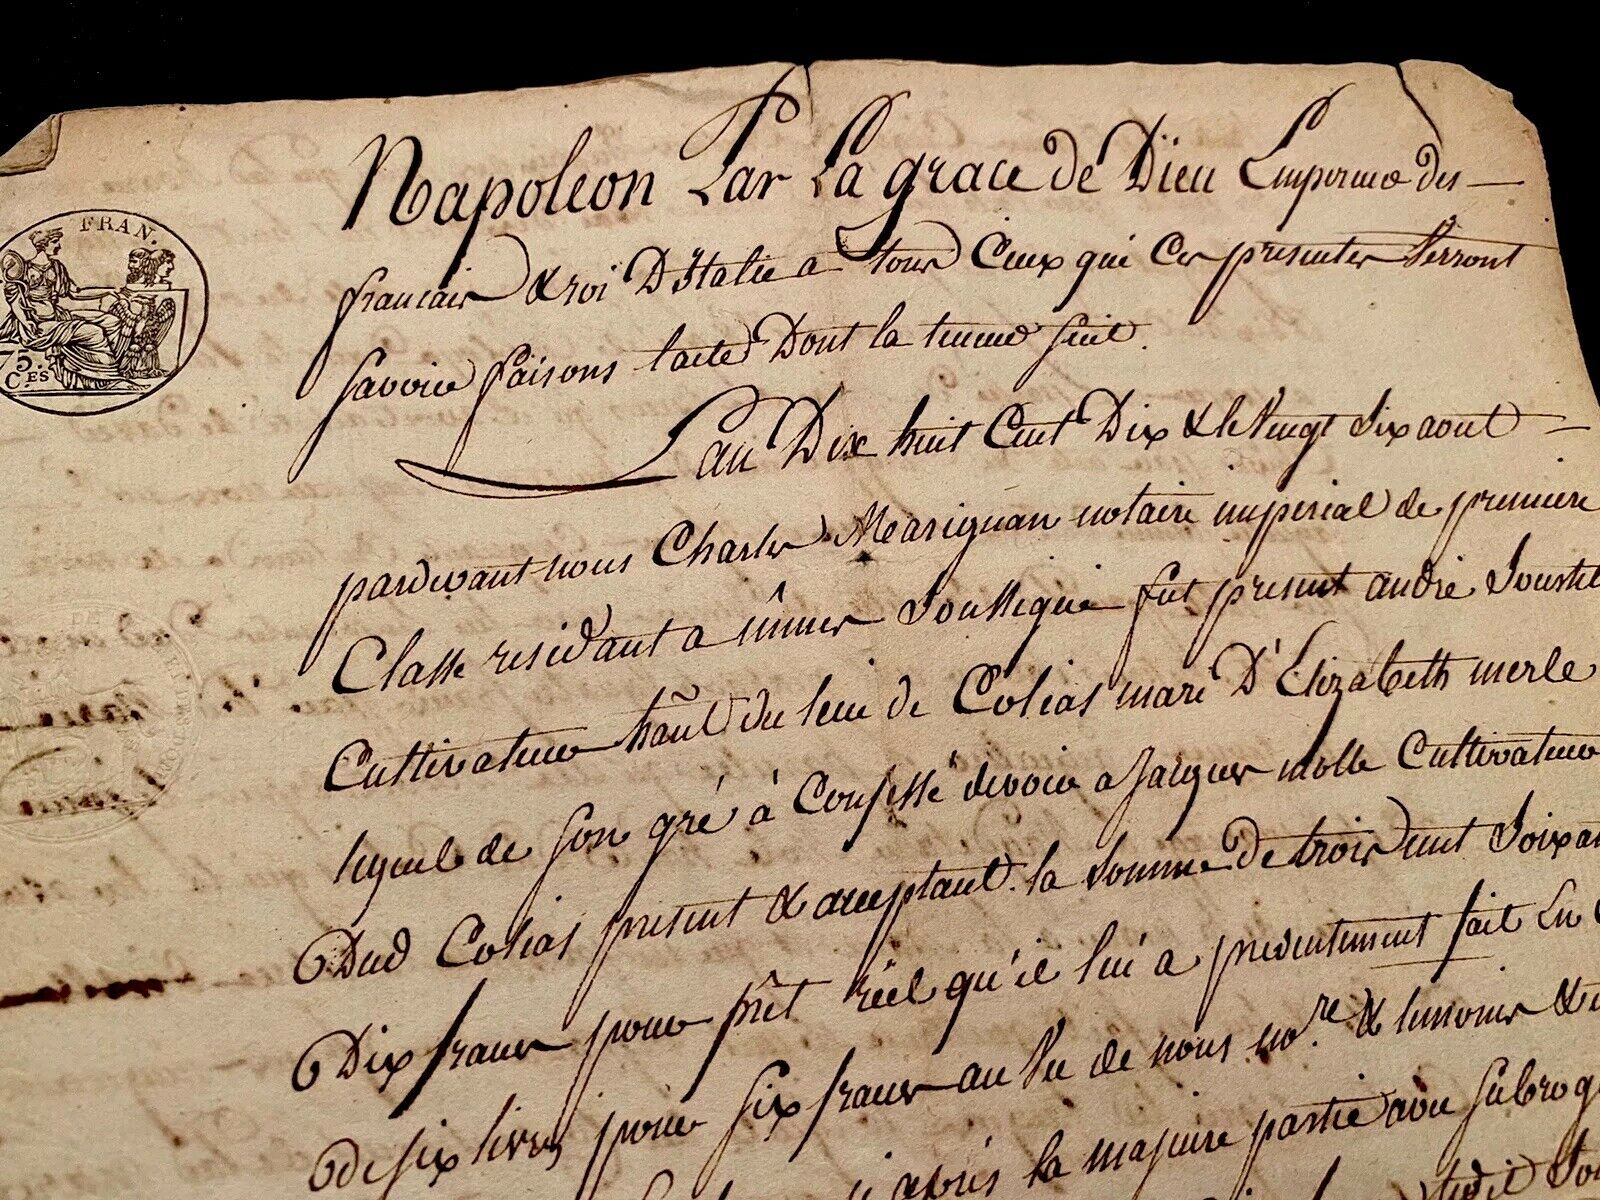 Napoleon Par La grace de Dieu Empereur des
francais & roi D'Italie a tous Ceux qui Ces presentes Verront
savoir faisons l'acte Dont la teneur suit.
L'an Dix huit Cent Dix & le Vingt six aout
pardevant nous Charles Marignan notaire imperial de premiere
Classe residant a nimes Soussigné fut present andré Soustel
Cultivateur hãnt du lieu de Colias mari D'Elizabeth merle
lequel de son gré à Confessé devoir a Jacques Cultivateur
Dud Colias present & acceptant. la somme De trois cent Soixan
Dix francs pour prêt réel qu'il lui a presentement fait En
de six livres pour six francs au Vu de nous no.re & temoins &
après la majeure partie avec subrog
FRAN.
75
C.ES